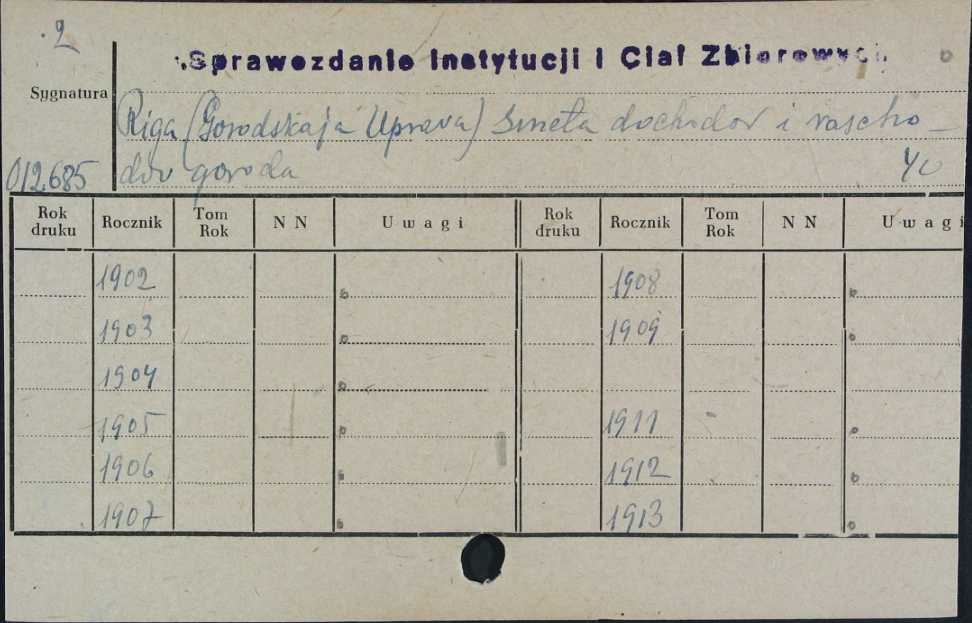 2
Sprawozdanie Instytucji i Ciał Zbiorowych
Sygnatura
Riga (Gorodskaja Uprava) Smeta dochodov i rascho-
012.685 dov goroda 40
Rok druku Rocznik Tom Rok N N Uwagi Rok druku Rocznik Tom Rok N N Uwagi
1902 1908
1903 1909
1904
1905 1911
1906 1912
1907 1913